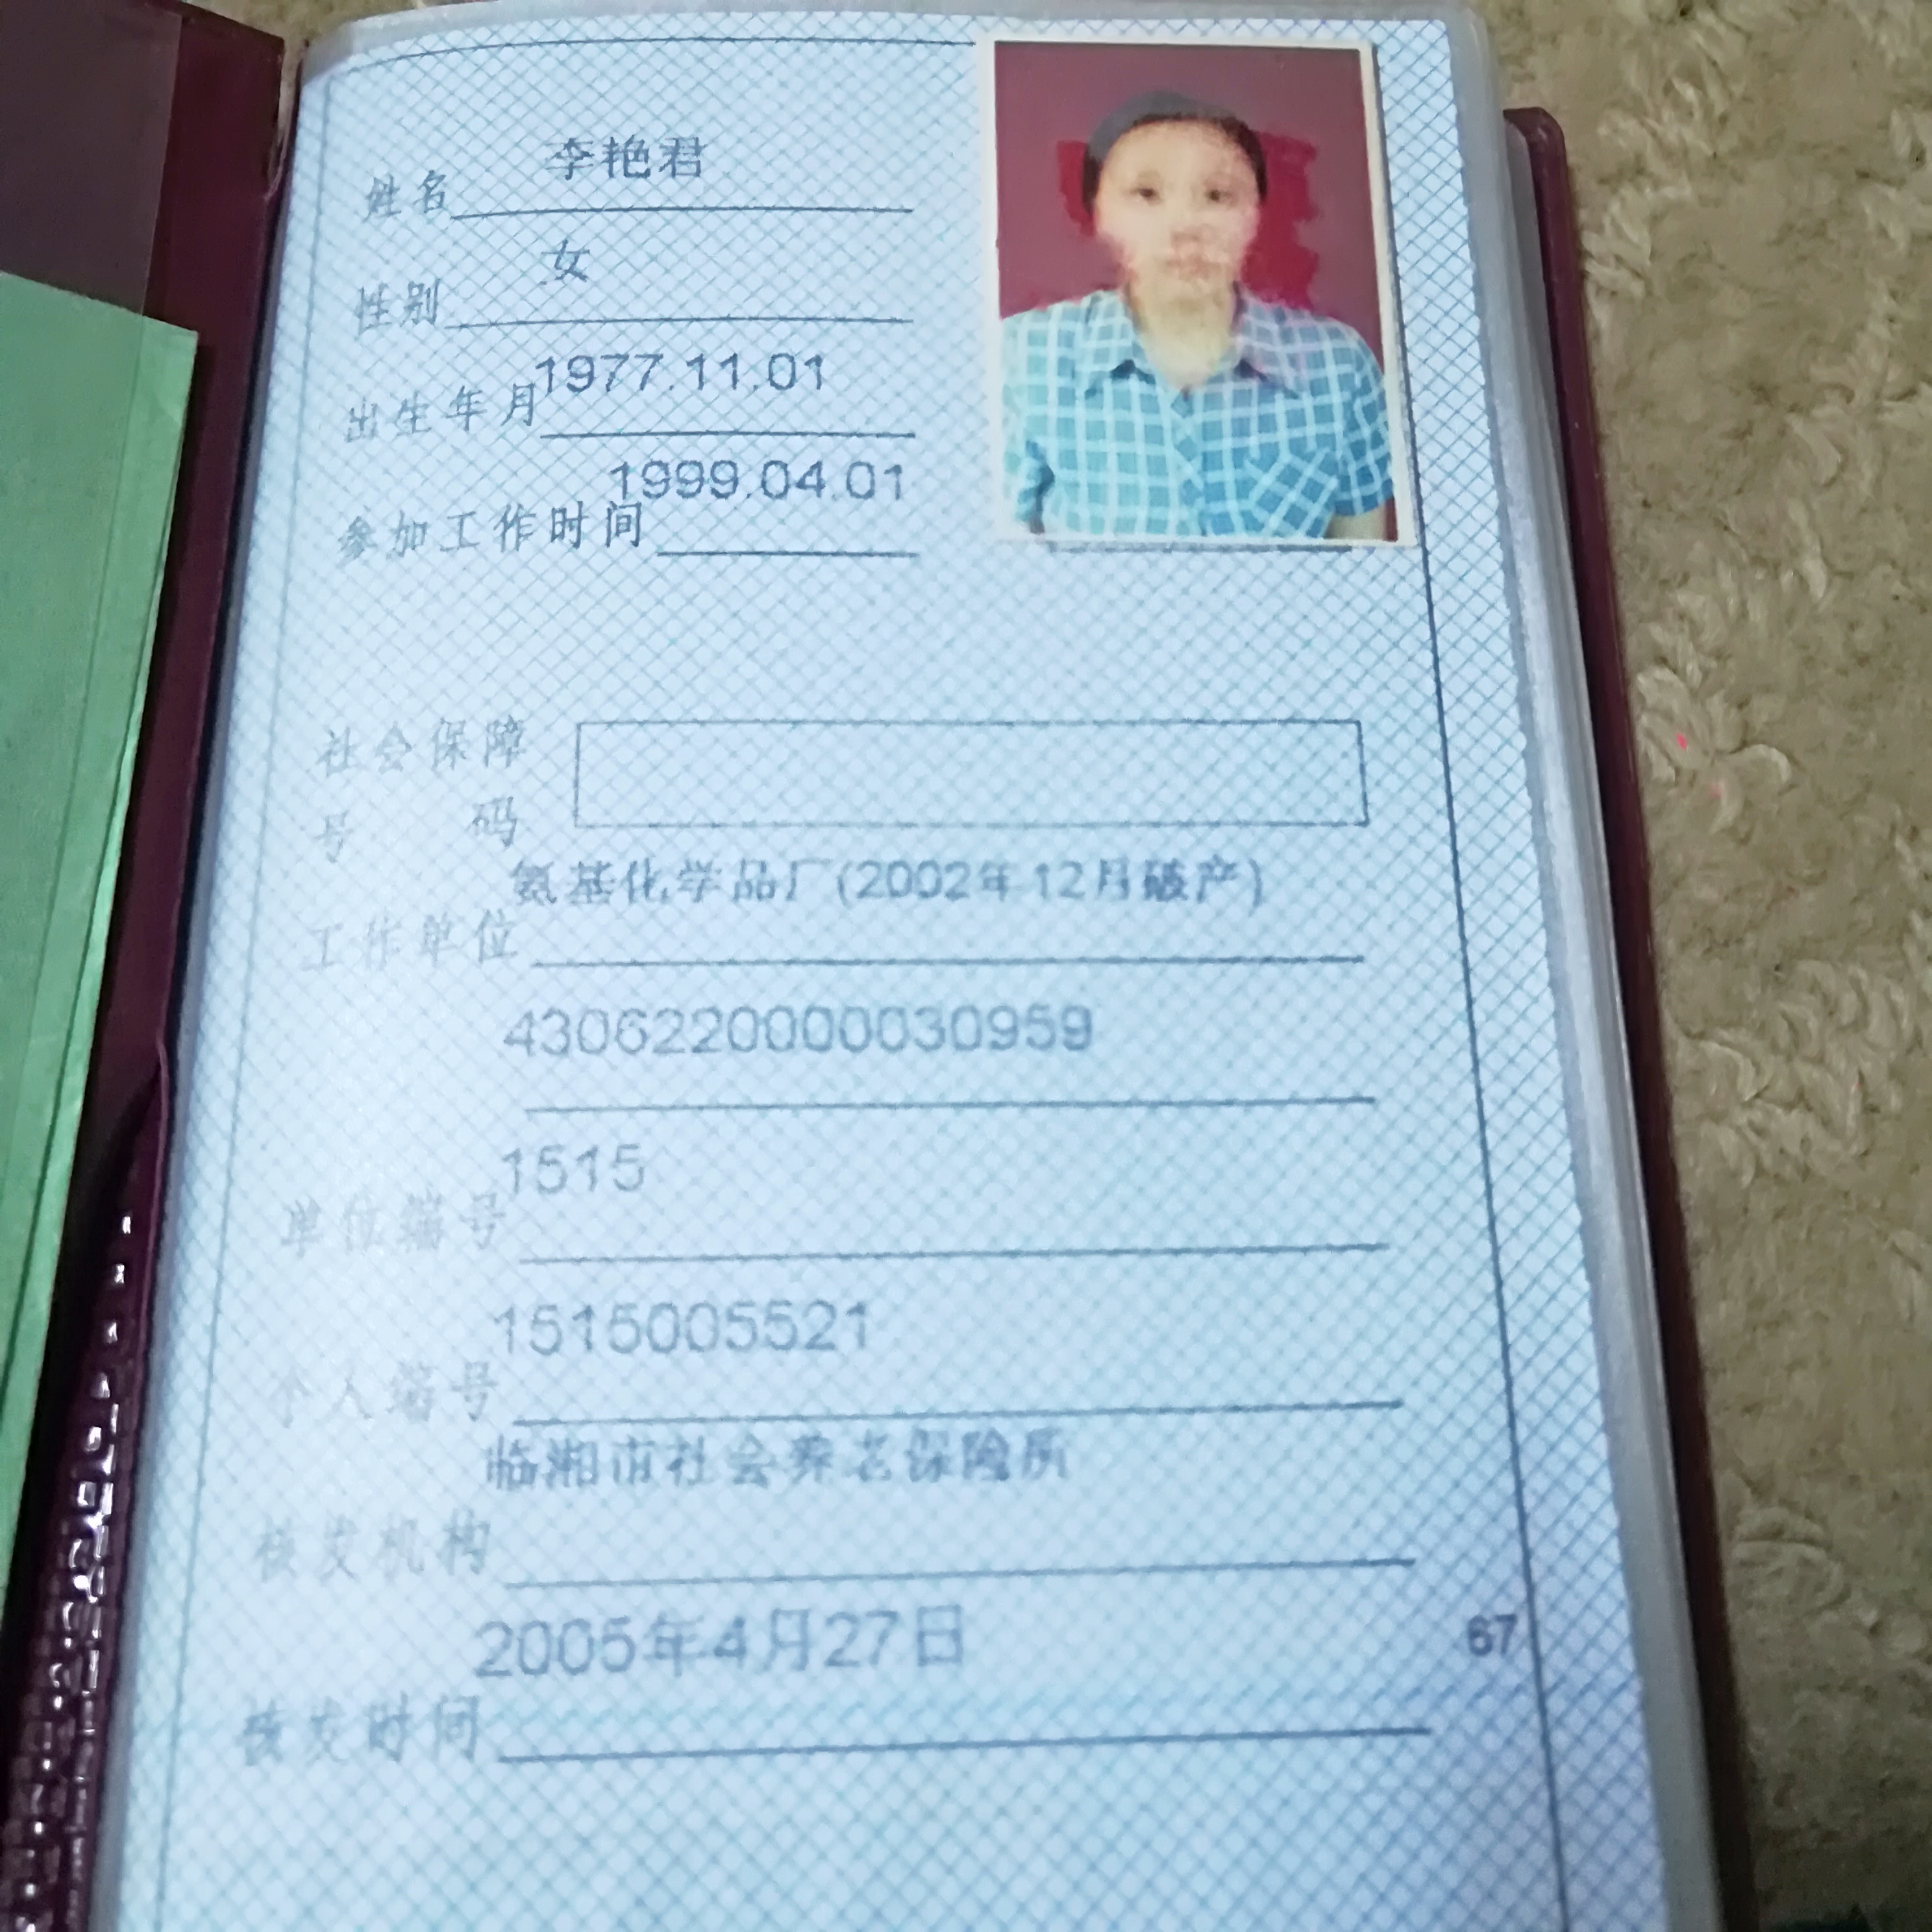 姓名 李艳君
性别 女
出生年月 1977.11.01
参加工作时间 1999.04.01
社会保障
号 码
氨基化学品厂(2002年12月破产)
工作单位
4306220000030959
1515
单位编号
1515005521
个人编号
临湘市社会养老保险所
核发机构
2005年4月27日
67
核发时间